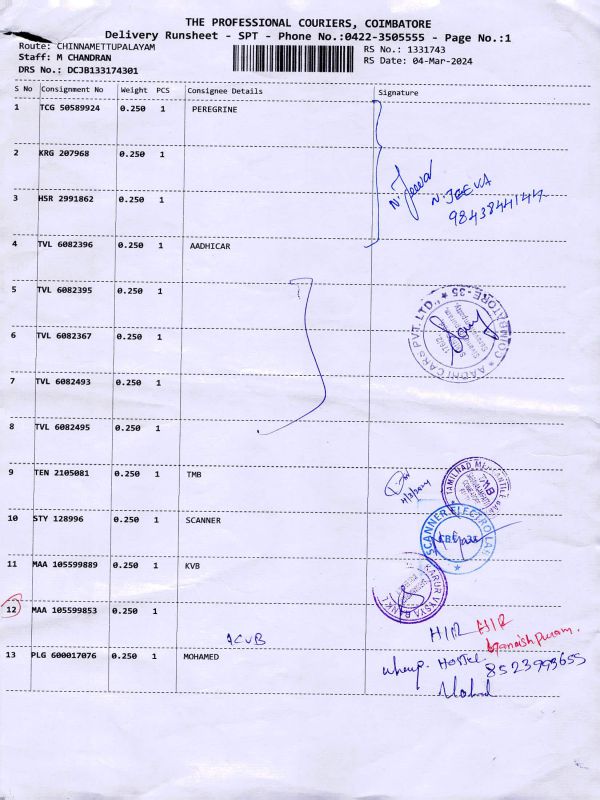 THE PROFESSIONAL COURIERS, COIMBATORE
Delivery Runsheet - SPT - Phone No.:0422-3505555 - Page No.:1
Route: CHINNAMETTUPALAYAM
RS No.: 1331743
Staff: M CHANDRAN
RS Date: 04-Mar-2024
DRS No.: DCJB133174301
S No Consignment No Weight PCS Consignee Details Signature
1 TCG 50589924 0.250 1 PEREGRINE
2 KRG 207968 0.250 1
N. Jeeva
N. JEEVA
9843844144
3 HSR 2991862 0.250 1
4 TVL 6082396 0.250 1 AADHICAR
5 TVL 6082395 0.250 1
AADHI CARS PVT. LTD., COIMBATORE-35
6 TVL 6082367 0.250 1
7 TVL 6082493 0.250 1
8 TVL 6082495 0.250 1
9 TEN 2105081 0.250 1 TMB
TAMILNAD MERCANTILE
TMB
10 STY 128996 0.250 1 SCANNER
SCANNER ELECTRO LAB
11 MAA 105599889 0.250 1 KVB
KARUR VYSYA BANK
12 MAA 105599853 0.250 1
HIR HIR
13 PLG 600017076 0.250 1 MOHAMED
Hostel
8523993655